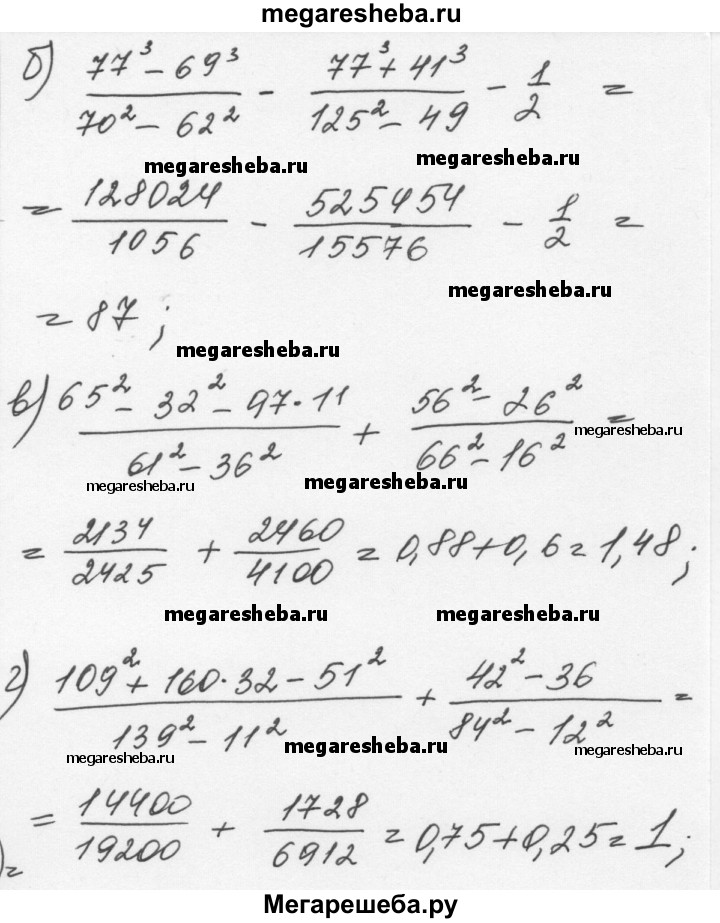 megaresheba.ru
б) (77³ - 69³)/(70² - 62²) - (77³ + 41³)/(125² - 49) - 1/2 =
megaresheba.ru megaresheba.ru
= 128024/1056 - 525454/15576 - 1/2 =
megaresheba.ru
= 87 ;
megaresheba.ru
в) (65² - 32² - 97·11)/(61² - 36²) + (56² - 26²)/(66² - 16²) =
megaresheba.ru
megaresheba.ru megaresheba.ru
= 2134/2425 + 2460/4100 = 0,88 + 0,6 = 1,48 ;
megaresheba.ru megaresheba.ru
г) (109² + 160·32 - 51²)/(139² - 11²) + (42² - 36)/(84² - 12²) =
megaresheba.ru megaresheba.ru megaresheba.ru
= 14400/19200 + 1728/6912 = 0,75 + 0,25 = 1 ;
Мегарешеба.ру